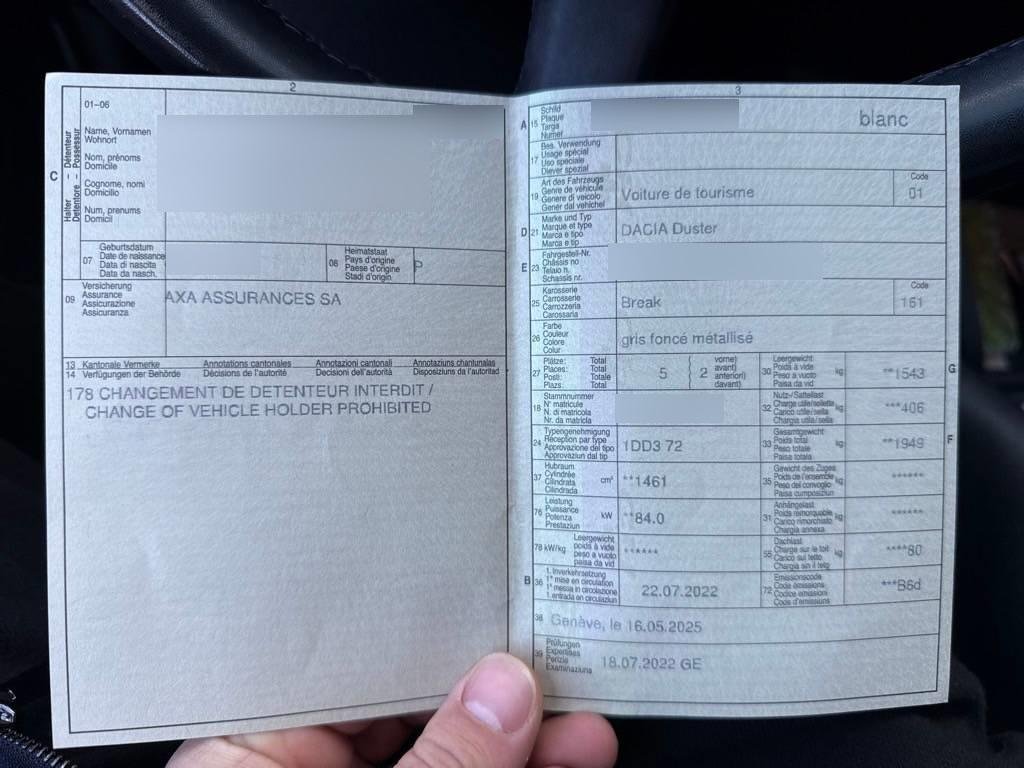 2
01–06
Halter – Détenteur
Detentore – Possessur
C
Name, Vornamen
Wohnort
Nom, prénoms
Domicile
Cognome, nomi
Domicilio
Num, prenums
Domicil
07
Geburtsdatum
Date de naissance
Data di nascita
Data da nasch.
08
Heimatstaat
Pays d'origine
Paese d'origine
Stadi d'origin
P
09
Versicherung
Assurance
Assicurazione
Assicuranza
AXA ASSURANCES SA
13 Kantonale Vermerke Annotations cantonales Annotazioni cantonali Annotaziuns chantunalas
14 Verfügungen der Behörde Décisions de l'autorité Decisioni dell'autorità Disposiziuns da l'autoritad
178 CHANGEMENT DE DETENTEUR INTERDIT /
CHANGE OF VEHICLE HOLDER PROHIBITED
3
A 15
Schild
Plaque
Targa
Numer
blanc
17
Bes. Verwendung
Usage spécial
Uso speciale
Diever spezial
19
Art des Fahrzeugs
Genre de véhicule
Genere di veicolo
Gener dal vehichel
Voiture de tourisme
Code
01
D 21
Marke und Typ
Marque et type
Marca e tipo
Marca e tip
DACIA Duster
E 23
Fahrgestell-Nr.
Châssis no
Telaio n.
Schassis nr.
25
Karosserie
Carrosserie
Carrozzeria
Carossaria
Break
Code
161
26
Farbe
Couleur
Colore
Colur
gris foncé métallisé
27
Plätze: Total
Places: Total
Posti: Totale
Plazs: Total
5
2
vorne)
avant)
anteriori)
davant)
30
Leergewicht
Poids à vide
Peso a vuoto
Paisa da vid
kg
**1543
G
18
Stammnummer
N° matricule
N. di matricola
Nr. da matricla
32
Nutz-/Sattellast
Charge utile/sellette
Carico utile/sella
Chargia utila/sella
kg
***406
24
Typengenehmigung
Réception par type
Approvazione del tipo
Approvaziun dal tip
1DD3 72
33
Gesamtgewicht
Poids total
Peso totale
Paisa totala
kg
**1949
F
37
Hubraum
Cylindrée
Cilindrata
Cilindrada
cm³
**1461
35
Gewicht des Zuges
Poids de l'ensemble
Peso del convoglio
Paisa cumposiziun
kg
******
76
Leistung
Puissance
Potenza
Prestaziun
kW
**84.0
31
Anhängelast
Poids remorquable
Carico rimorchiato
Chargia annexa
kg
******
78 kW/kg
Leergewicht
poids à vide
peso a vuoto
paisa da vid
******
55
Dachlast
Charge sur le toit
Carico sul tetto
Chargia sin il tetg
kg
****80
B 36
1. Inverkehrsetzung
1re mise en circulation
1a messa in circolazione
1. entrada en circulaziun
22.07.2022
72
Emissionscode
Code émissions
Codice emissioni
Code d'emissiuns
***B6d
38 Genève, le 16.05.2025
39
Prüfungen
Expertises
Perizie
Examinaziuns
18.07.2022 GE